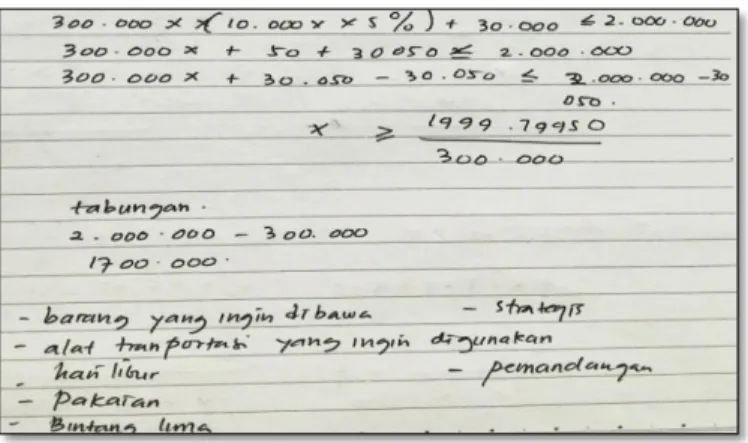 300.000 x x (10.000 x x 5%) + 30.000 ≤ 2.000.000
300.000 x + 50 + 30050 ≤ 2.000.000
300.000 x + 30.050 - 30.050 ≤ 2.000.000 -30
050.
x ≥ 1999.79950
300.000
tabungan.
2.000.000 - 300.000
1700.000.
- barang yang ingin dibawa - strategis
- alat tranportasi yang ingin digunakan
- hari libur - pemandangan
- Pakaian
- Bintang lima